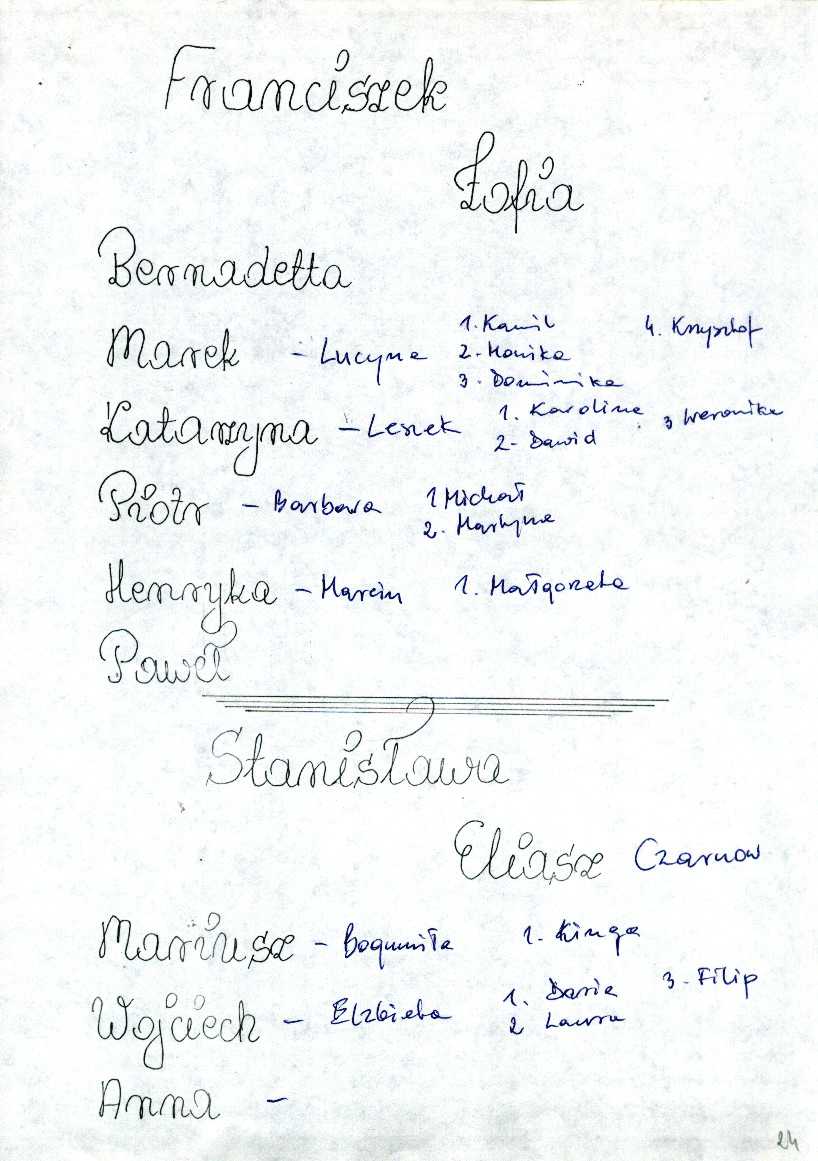 Franciszek
Zofia
Bernadetta
Marek - Lucyna 1. Kamil 4. Krzysztof
2. Monika
3. Dominika
Katarzyna - Leszek 1. Karolina 3 Weronika
2. Dawid
Piotr - Barbara 1 Michał
2. Martyna
Henryka - Marcin 1. Małgorzata
Paweł
Stanisława
Eliasz Czarnow
Mariusz - Bogumiła 1. Kinga
Wojciech - Elzbieta 1. Daria 3. Filip
2 Laura
Anna -
24